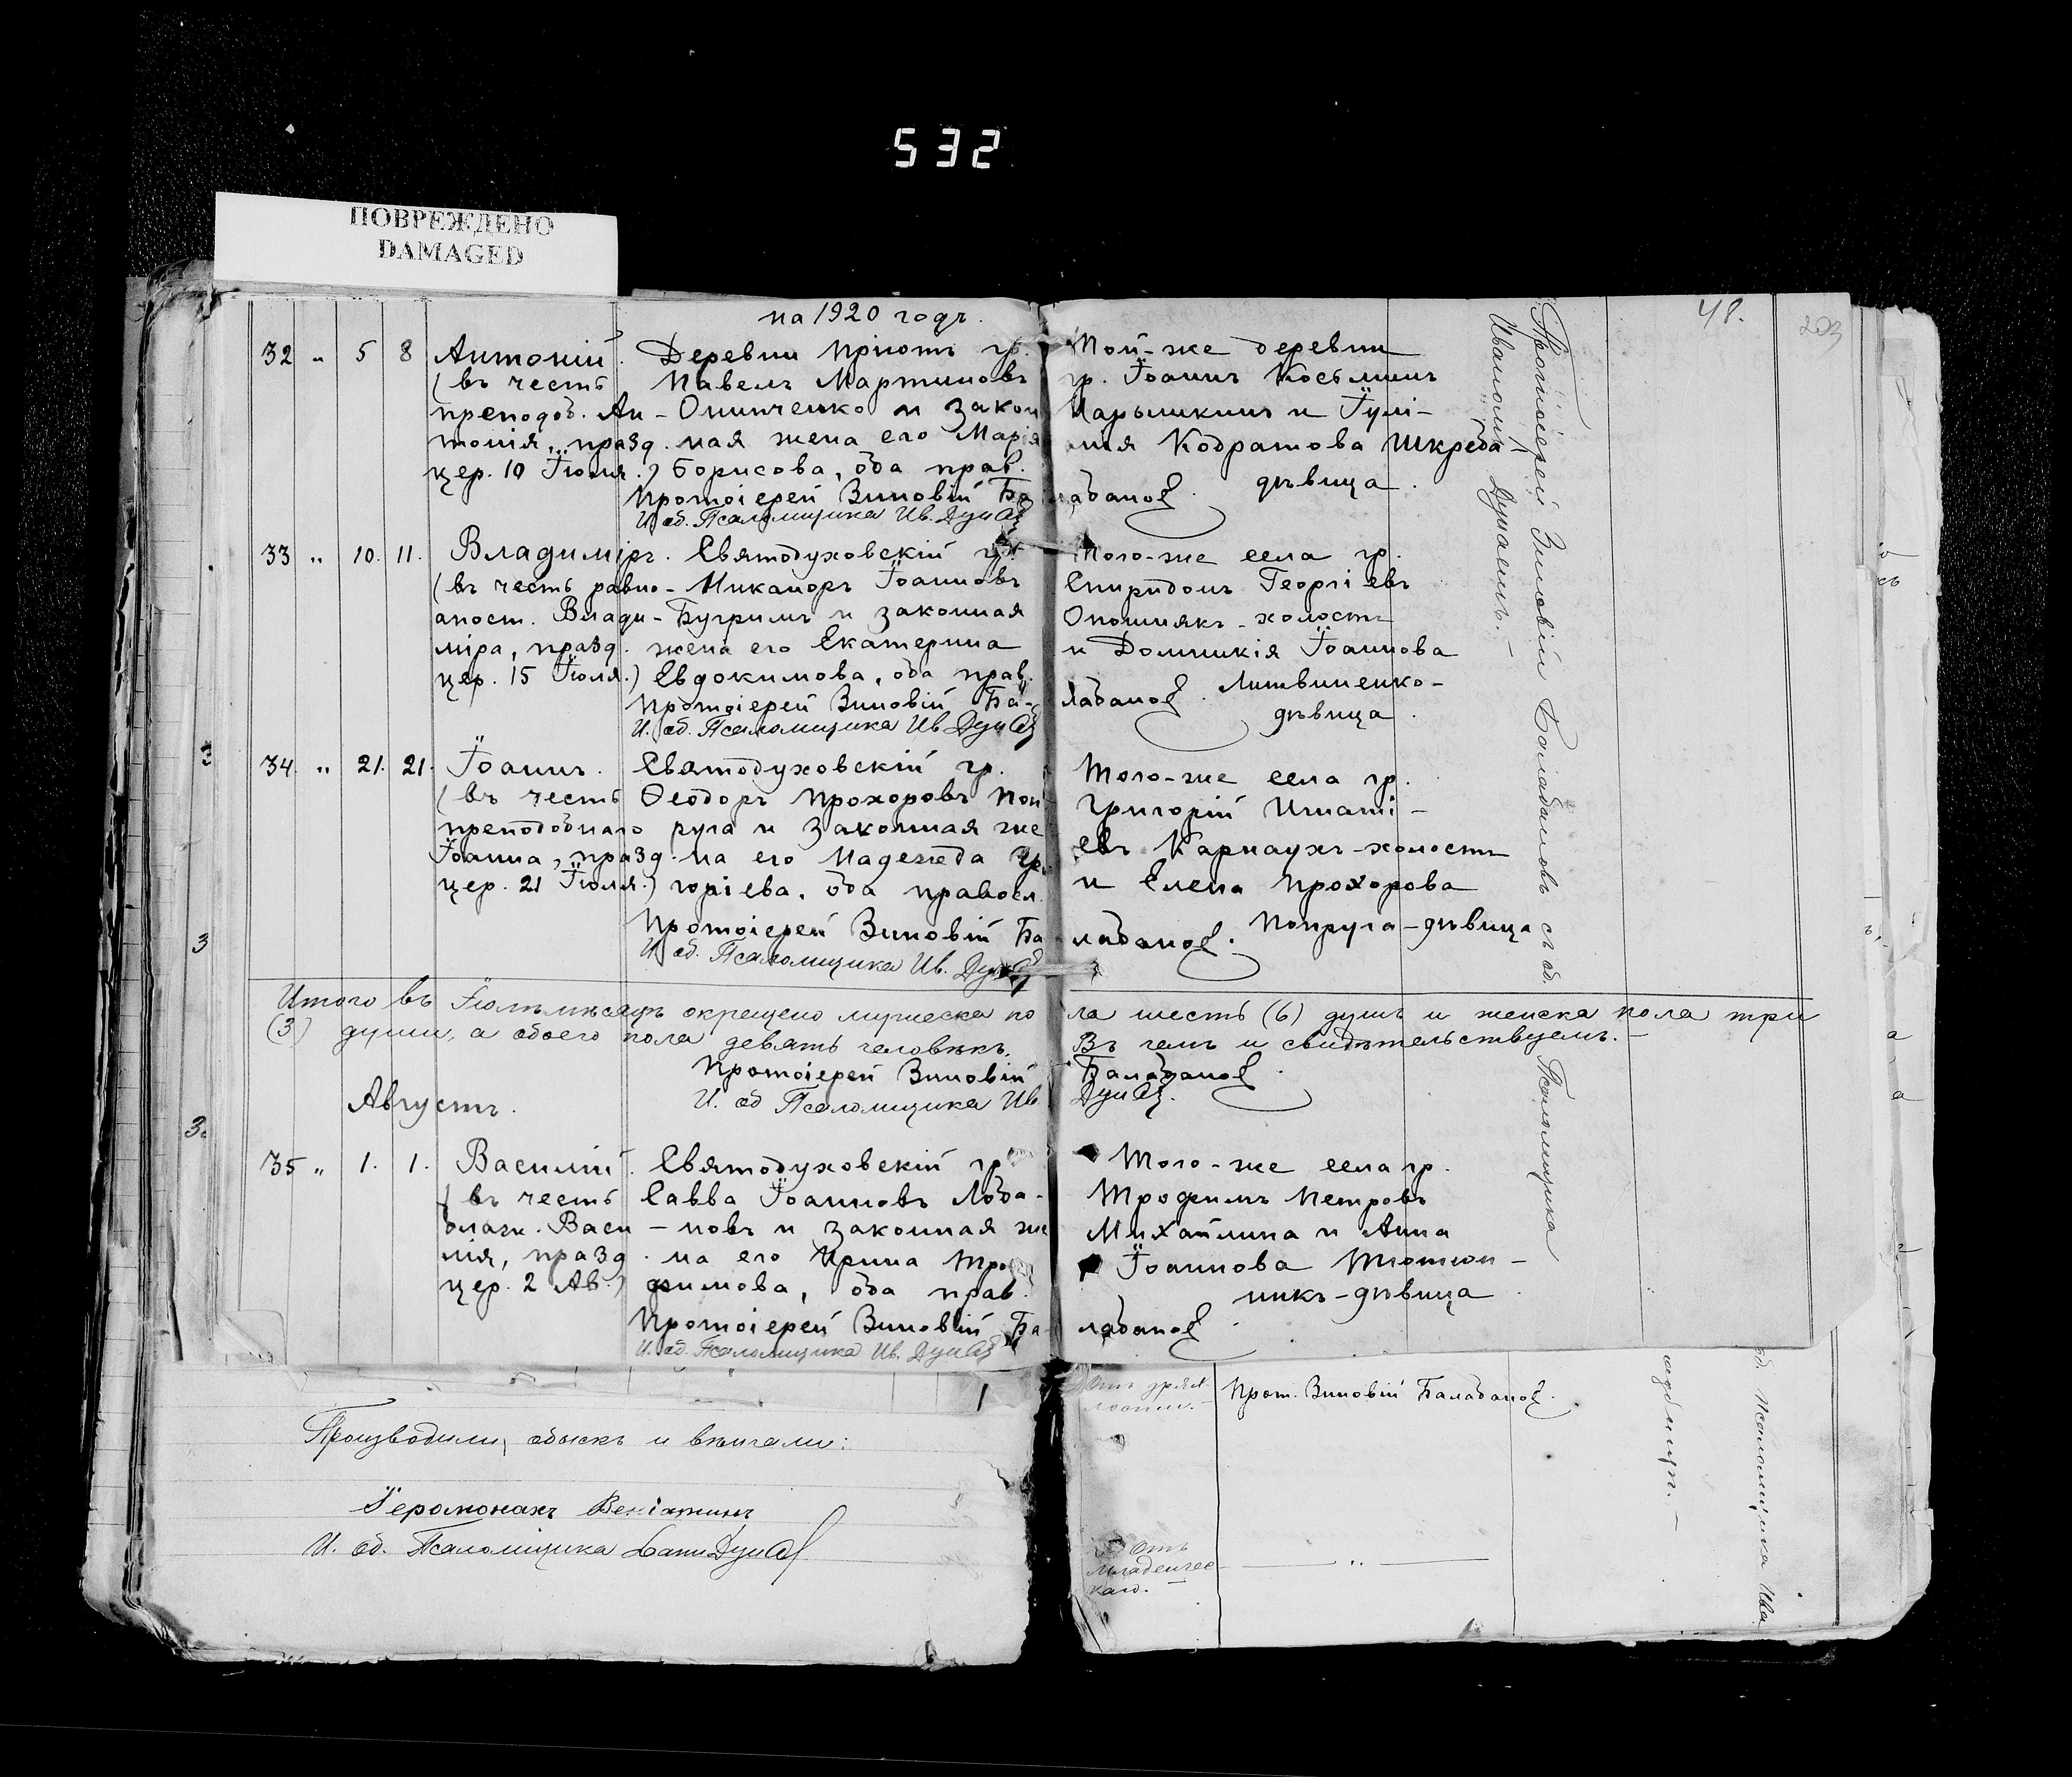 532
ПОВРЕЖДЕНО
DAMAGED
на 1920 годъ.
48.
203
32 " 5 8 Антоній.
(въ честь
преподоб. Ан-
тонія, празд.
цер. 10 Іюля.)
Деревни Пріютъ гр.
Павелъ Мартиновъ
Онипченко и закон
ная жена его Марія
Борисова, оба прав.
Протоіерей Зиновій Ба
И. об. Псаломщика Ив.
Той-же деревни
гр. Іоаннъ Косьминъ
Нарышкинъ и Іулі-
анія Кодратова Шкреба-
дѣвица.
лабанов
33 " 10. 11. Владиміръ.
(въ честь равно-
апост. Влади-
міра, празд.
цер. 15 Іюля.)
Святодуховскій гр.
Никаноръ Іоанновъ
Бугримъ и законная
жена его Екатерина
Евдокимова, оба прав.
Протоіерей Зиновій Ба-
И. об. Псаломщика Ив
Того-же села гр.
Спиридонъ Георгіевъ
Опошнякъ - холостъ
и Домникія Іоаннова
Литвиненко-
дѣвица.
лабанов
34. " 21. 21. Іоаннъ.
(въ честь
преподобнаго
Іоанна, празд.
цер. 21 Іюля.)
Святодуховскій гр.
Ѳеодоръ Прохоровъ Поп
руга и законная же
на его Надежда Гр
горіева, оба правосл.
Протоіерей Зиновій Ба
И. об. Псаломщика Ив.
Того-же села гр.
Григорій Игнаті-
евъ Карнаухъ-холостъ
и Елена Прохорова
Попруга-дѣвица
лабанов.
Итого въ Іюлѣ мѣсяцѣ окрещено мужеска по
ла шесть (6) душъ и женска пола три
(3) души, а обоего пола девять человѣкъ.
Въ чемъ и свидѣтельствуемъ.-
Протоіерей Зиновій
Балабанов.
И. об Псаломщика Ив.
Августъ.
35 " 1. 1. Василій.
(въ честь
блаж. Васи-
лія, празд.
цер. 2 Ав.)
Святодуховскій гр
Савва Іоанновъ Лоба-
новъ и законная же
на его Ирина Тро
фимова, оба прав.
Протоіерей Зиновій Ба-
И. об. Псаломщика Ив.
Того-же села гр.
Трофимъ Петровъ
Михайлина и Анна
Іоаннова Тютюн-
никъ-дѣвица.
лабанов
Протоіерей Зиновій Балабановъ съ об. Псаломщика
Иваномъ
Производили обыскъ и вѣнчали:
Іеромонахъ Веніаминъ
И. об. Псаломщика
Отъ
Прот. Зиновій Балабанов.
Отъ
младенчес
каго.-
Псаломщика Ива